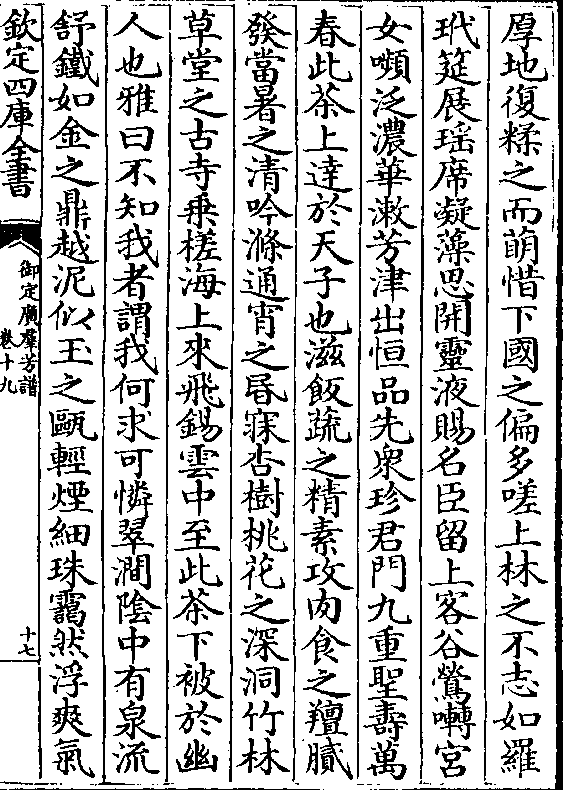 厚地復糅之而萌惜下國之偏多嗟上林之不志如羅
玳筵展瑶席凝藻思開靈液賜名臣留上客谷鶯囀宮
女嚬泛濃華漱芳津出恒品先衆珍君門九重聖壽萬
春此茶上逹於天子也滋飯蔬之精素攻肉食之羶膩
發當暑之清吟滌通宵之昏寐杏樹桃花之深洞竹林
草堂之古寺乗槎海上來飛錫雲中至此茶下被於幽
人也雅曰不知我者謂我何求可憐翠澗陰中有泉流
舒鐵如金之鼎越泥似玉之甌輕煙細珠靄然浮爽氣
欽定四庫全書
御定廣羣芳譜
卷十九
十七